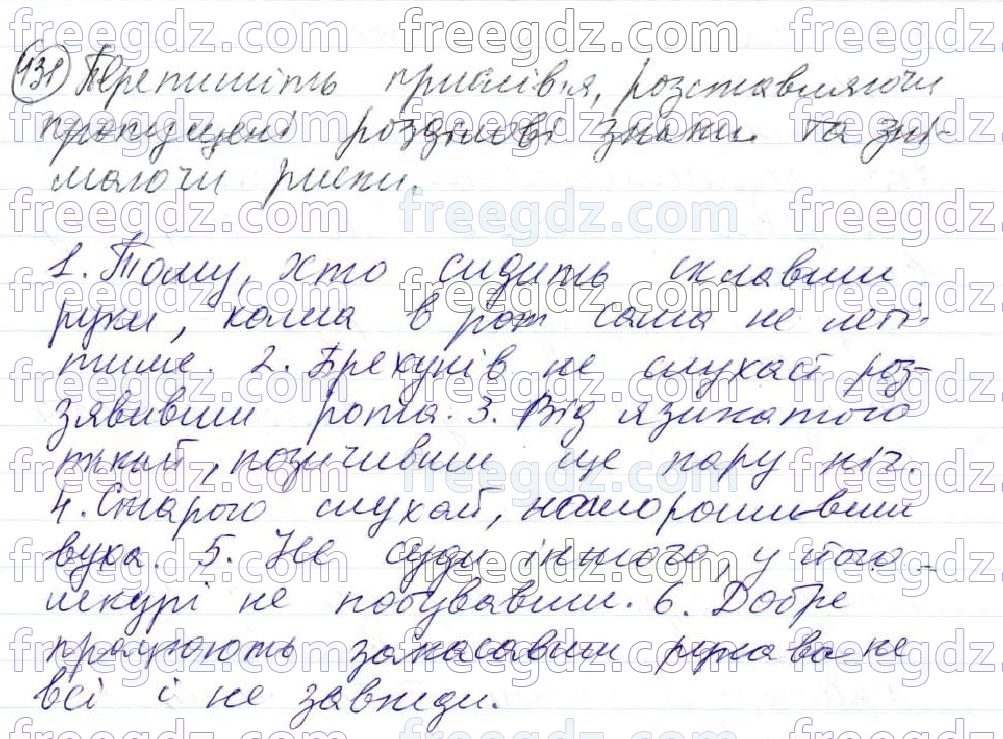 431 Перепишіть прислів'я, розставляючи
пропущені розділові знаки та зні-
маючи риски.
1. Тому, хто сидить склавши
руки, каша в рот сама не леті-
тиме. 2. Брехунів не слухай роз-
зявивши рота. 3. Від язикатого
тікай, позичивши ще пару ніг.
4. Старого слухай, нашорошивши
вуха. 5. Не суди іншого, у його
шкурі не побувавши. 6. Добре
працюють закасавши рукава не
всі і не завжди.
freegdz.com